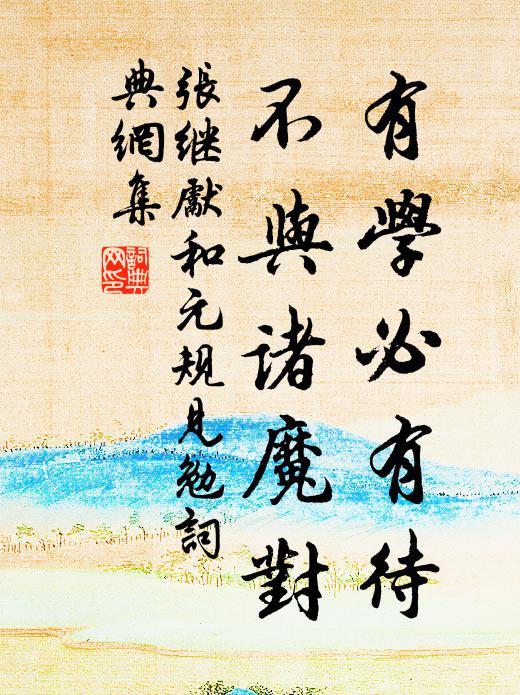 有學必有待
不與諸魔對
張继獻和元規見勉詞
典網集
詞典网印